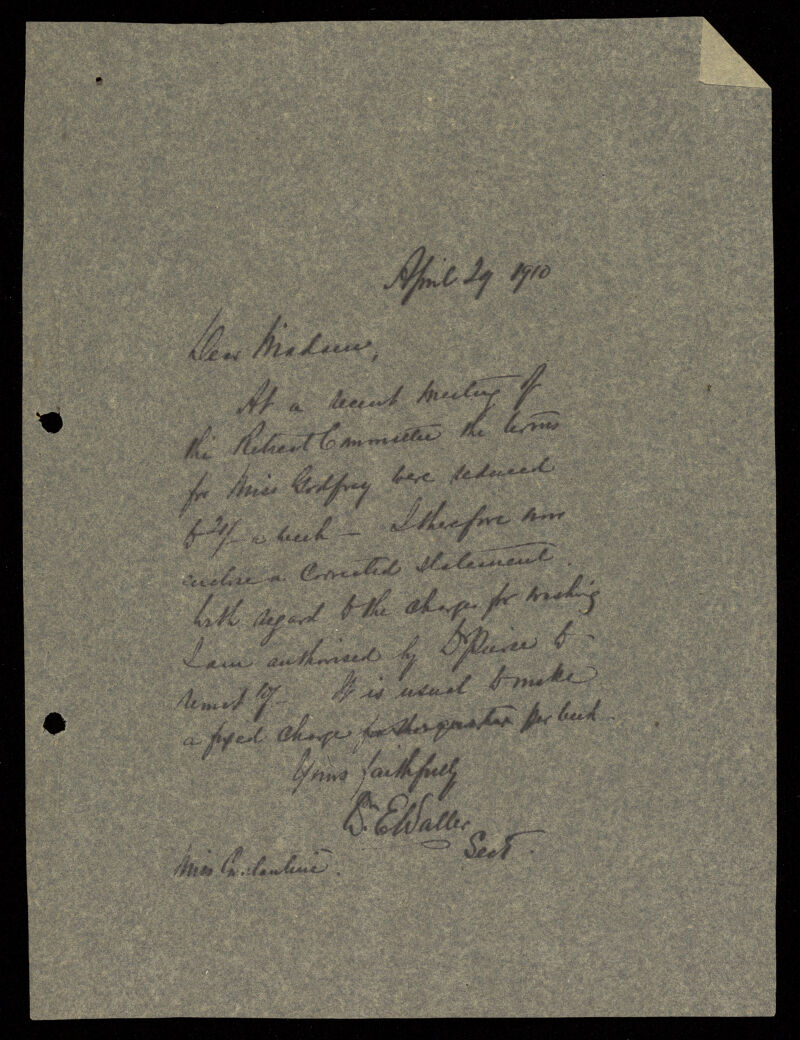 April 29 1910
Dear Madam,
At a recent meeting of
the Retreat Committee the terms
for Miss Godfrey were reduced
to 21/- a week - I therefore now
enclose a corrected statement.
With regard to the charge for washing
I am authorised by Dr Pierce to
remit
It is usual to make
a fixed charge per week.
Yours faithfully
Wm E Waller
Secty.
Miss